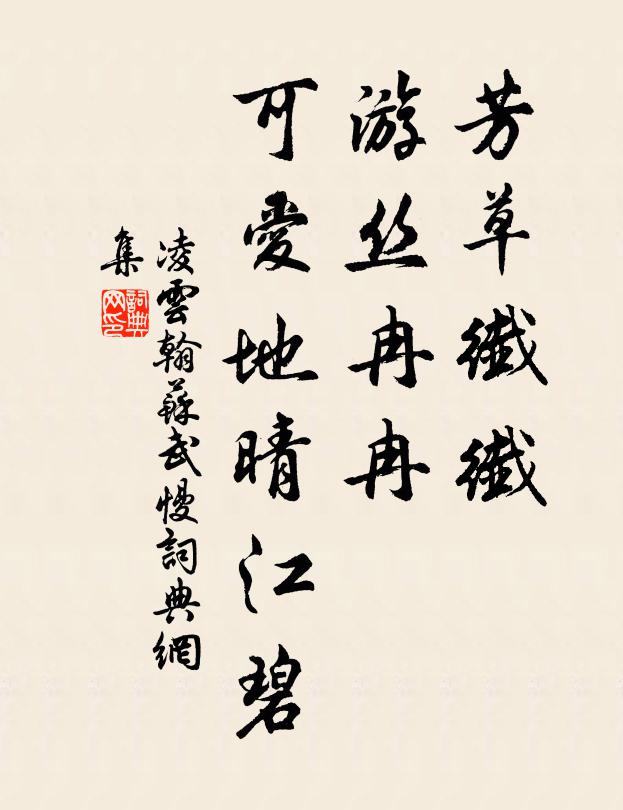 芳草纖纖
游丝冉冉
可愛地晴江碧
凌雲翰蘇武慢詞典網
集
詞典
网印